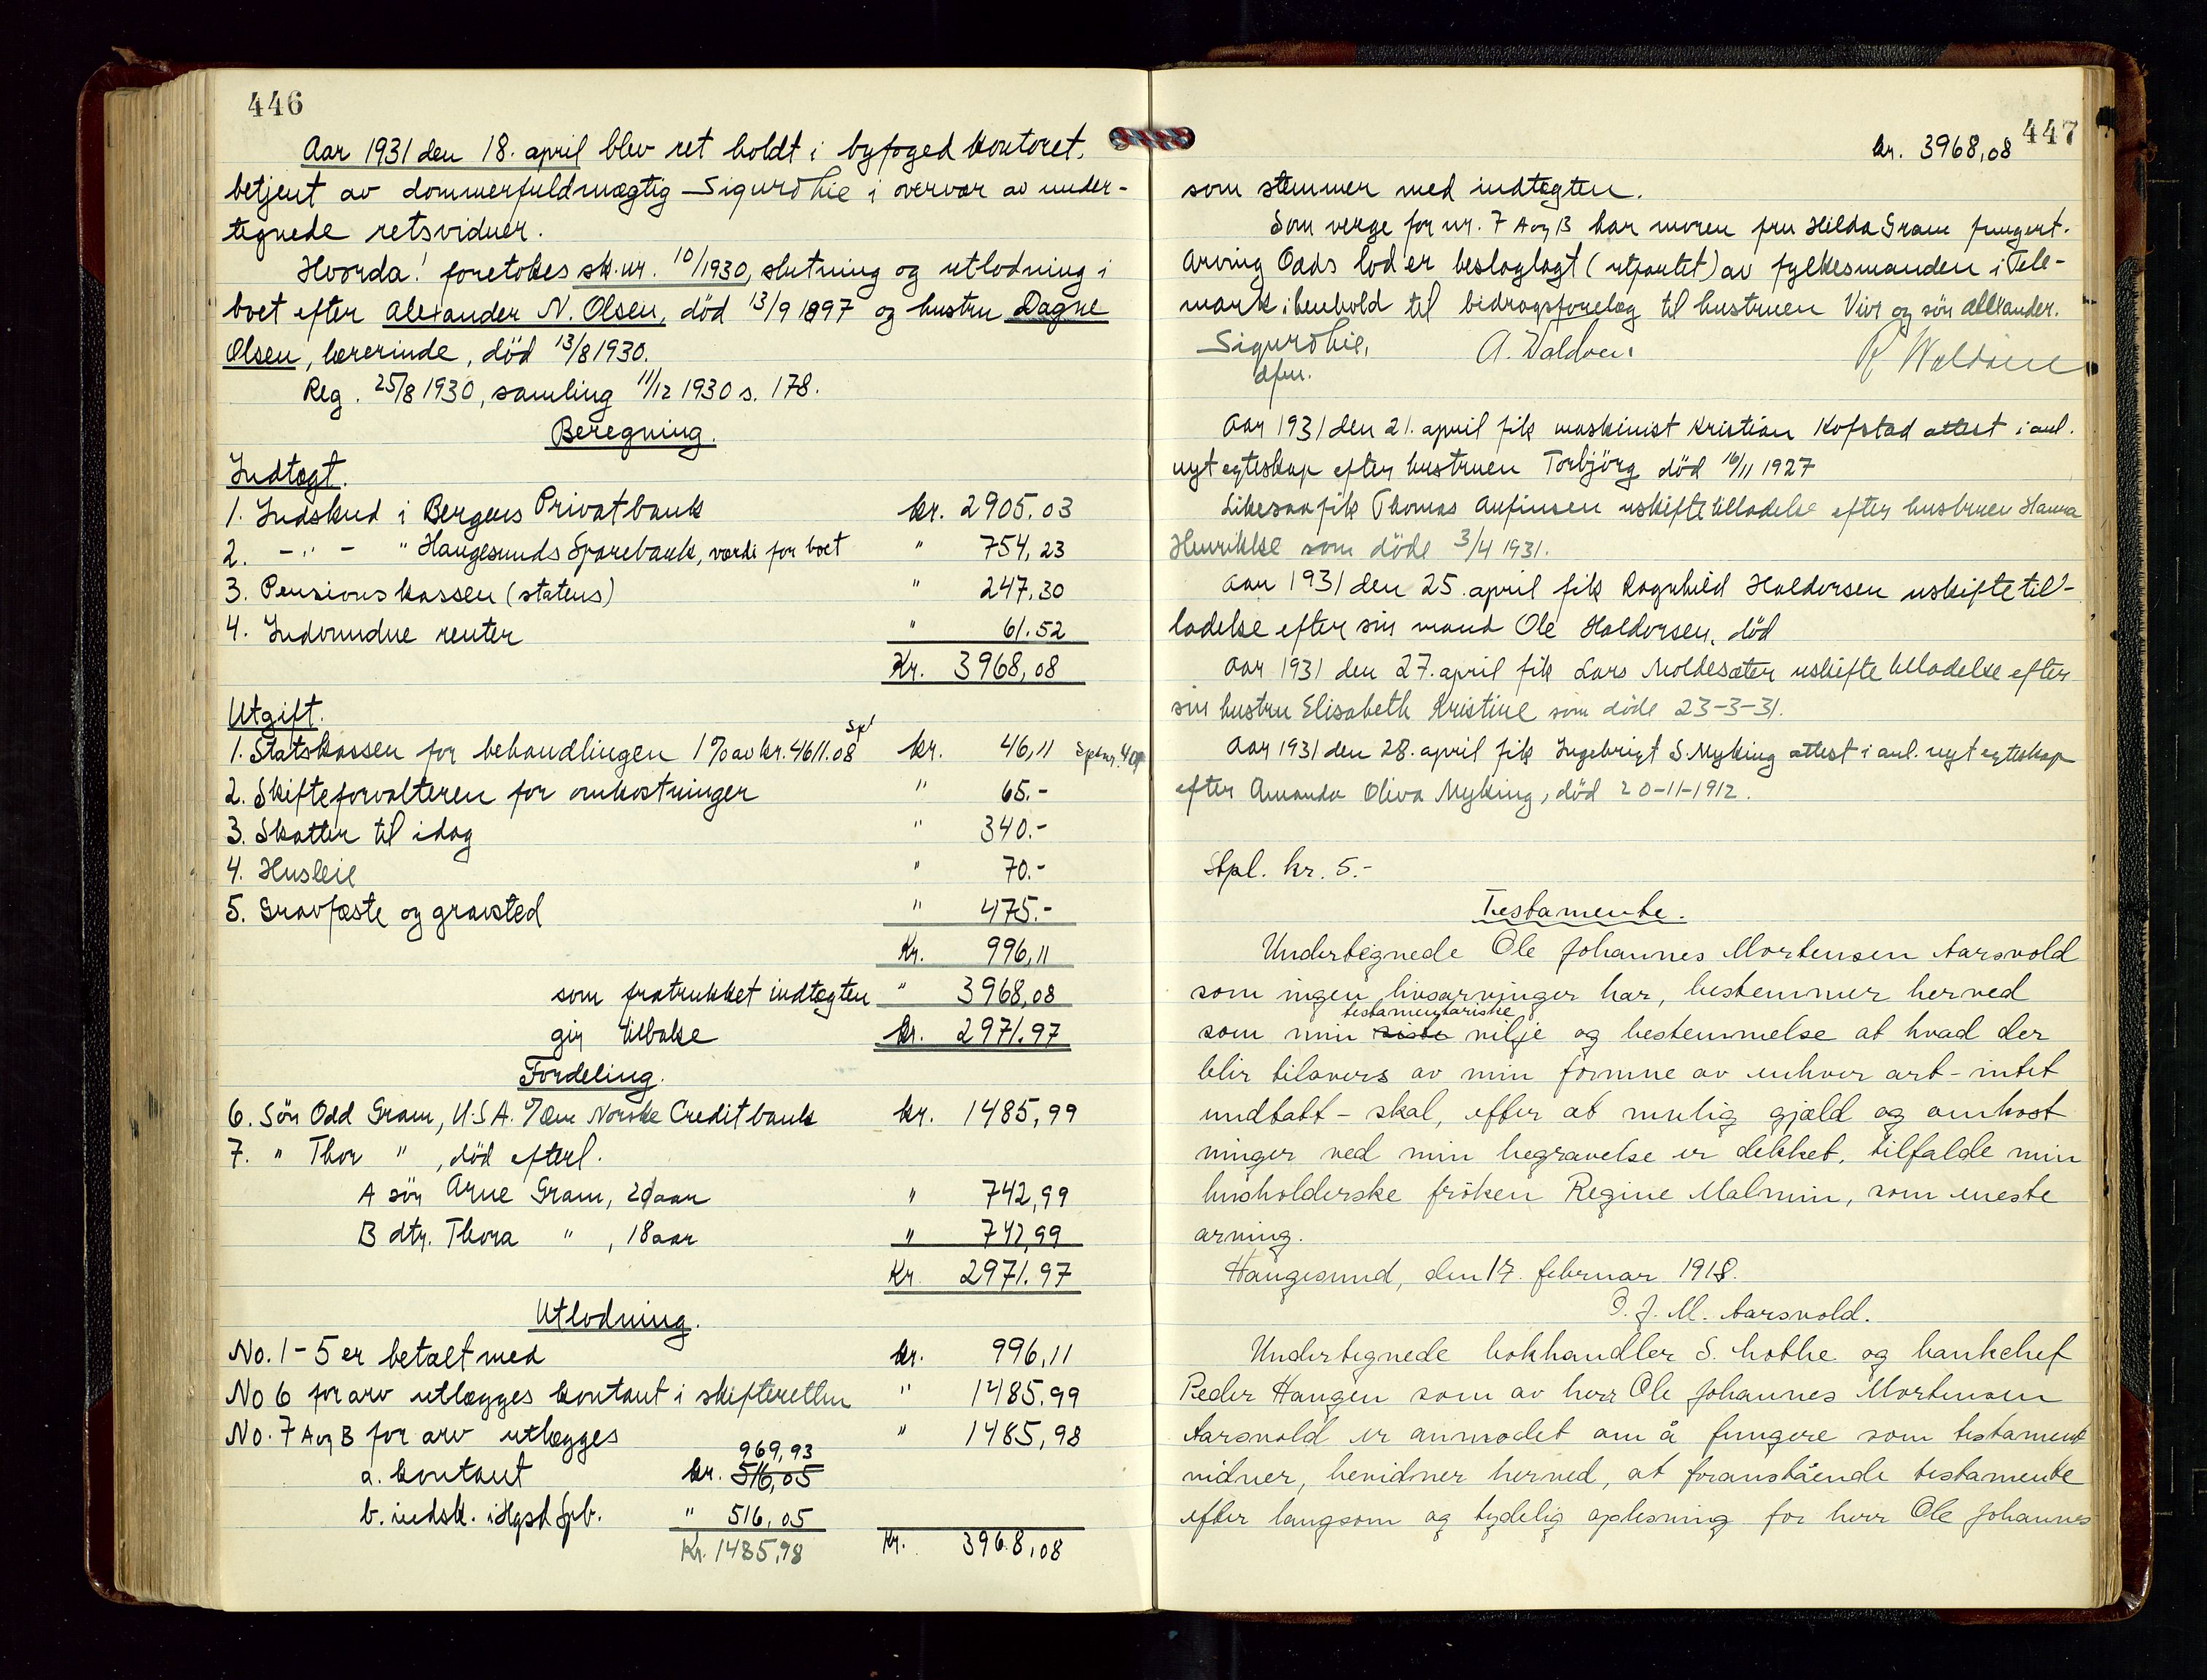 446
Aar 1931 den 18. april blev ret holdt i byfoged kontoret,
betjent av dommerfuldmægtig Sigurd Lie i overvær av under-
tegnede retsvidner.
Hvorda! foretokes sk.nr. 10/1930, slutning og utlodning i
boet efter Alexander N. Olsen, død 13/9 1897 og hustru Dagne
Olsen, lærerinde, død 13/8 1930.
Reg. 25/8 1930, samling 11/12 1930 s. 178.
Beregning.
Indtægt.
1. Indskud i Bergens Privatbank kr. 2905.03
2. -"- " Haugesunds Sparebank, værdi for boet " 754,23
3. Pensionskassen (statens) " 247,30
4. Indvundne renter " 61.52
Kr. 3968,08
Utgift.
1. Statskassen for behandlingen 1% av kr. 4611.08 kr. 46,11
2. Skifteforvalteren for omkostninger " 65.-
3. Skatter til idag " 340.-
4. Husleie " 70.-
5. Gravfæste og gravsted " 475.-
Kr. 996,11
som fratrukket indtægten " 3968,08
gir tilbake kr. 2971.97
Fordeling.
6. Søn Odd Gram, U.S.A. c/o Den Norske Creditbank kr. 1485,99
7. " Thor " , død efterl.
A søn Arne Gram, aar " 742,99
B dtr. Thora " , 18 aar " 742,99
Kr. 2971.97
Utlodning.
No. 1-5 er betalt med kr. 996,11
No 6 for arv utlægges kontant i skifteretten " 1485.99
No. 7 A og B for arv utlægges " 1485,98
969,93
a. kontant kr. 516,05
b. indsk. i Hgsd Spb. " 516,05
Kr. 1485,98 Kr. 3968,08
447
kr. 3968,08
som stemmer med indtægten.
Som verge for nr. 7 A og B har moren fru Hilda Gram fungert.
Arving Odds lod er beslaglagt (utpantet) av fylkesmanden i Tele-
mark i henhold til bidragsforelæg til hustruen Vivi og søn Alexander.
Sigurd Lie,
dfm.
Aar 1931 den 21. april fik maskinist Kristian Kofstad attest i anl.
nyt egteskap efter hustruen Torbjörg död 16/11 1927
Likesaa fik Thomas Anfinsen uskiftetilladelse efter hustruen Hanna
Henrikke som döde 3/4 1931.
Aar 1931 den 25. april fik Ragnhild Haldorsen uskiftetil-
ladelse efter sin mand Ole Haldorsen, död
Aar 1931 den 27. april fik Lars Moldesæter uskiftetilladelse efter
sin hustru Elisabeth Kristine som döde 23-3-31.
Aar 1931 den 28. april fik Ingebrigt S. Myking attest i anl. nyt egteskap
efter Amanda Oliva Myking, död 20-11-1912.
Stpl. kr. 5.-
Testamente.
Undertegnede Ole Johannes Mortensen Aarsvold
som ingen livsarvinger har, bestemmer herved
testamentariske
som min siste vilje og bestemmelse at hvad der
blir tilovers av min formue av enhver art - intet
undtatt - skal, efter at mulig gjæld og omkost
ninger ved min begravelse er dekket, tilfalde min
husholderske fröken Regine Malmin, som eneste
arving.
Haugesund, den 17. februar 1918.
O. J. M. Aarsvold.
Undertegnede bokhandler S. Lothe og bankchef
Peder Haugen som av herr Ole Johannes Mortensen
Aarsvold er anmodet om å fungere som testament
vidner, bevidner herved, at foranstående testamente
efter langsom og tydelig oplesning for herr Ole Johannes